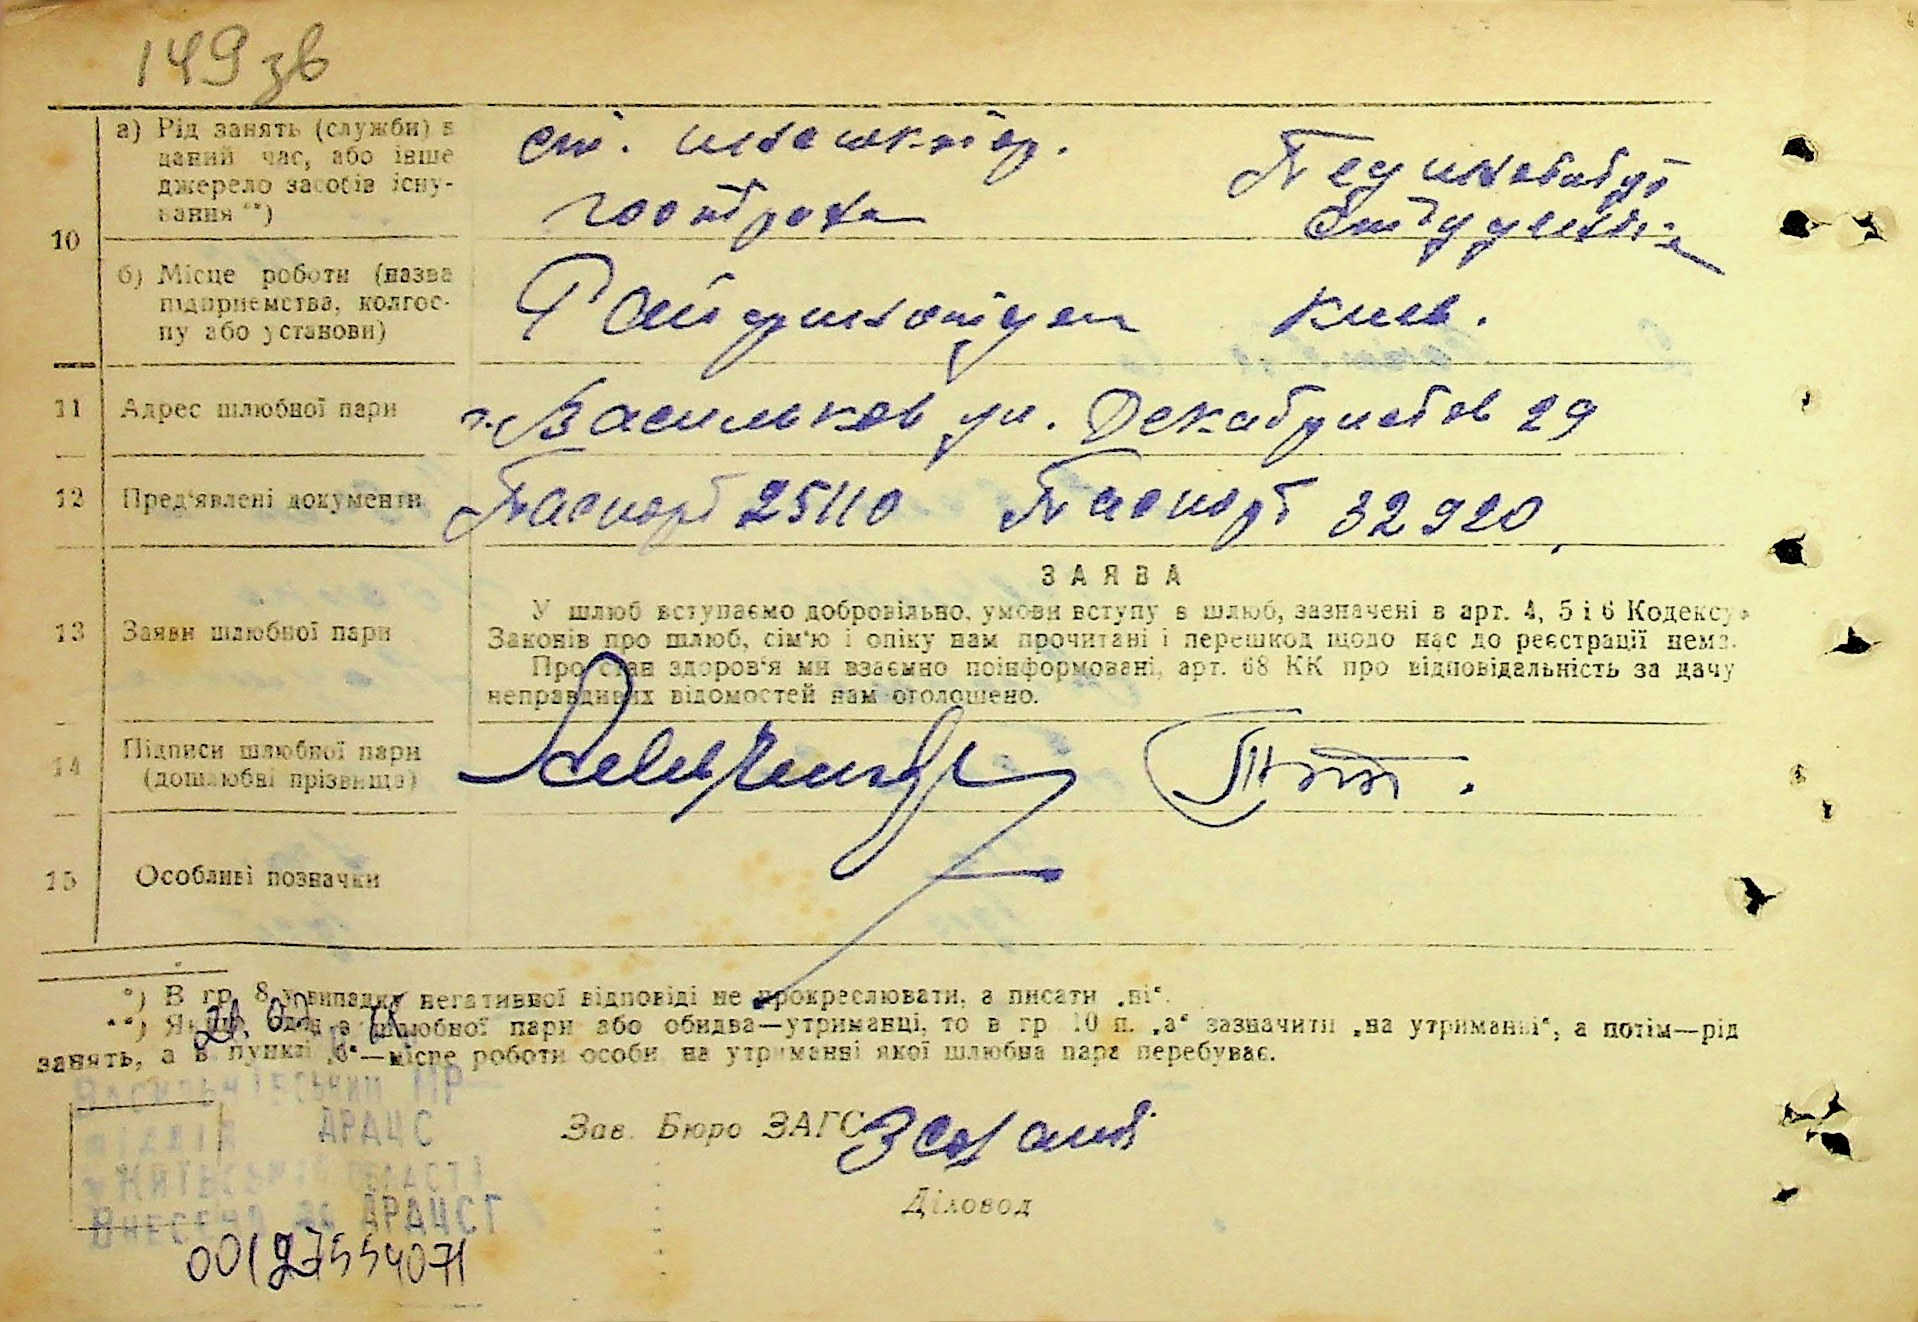 149зв
а) Рід занять (служби) в
даний час, або інше
джерело засобів існу-
вання **)
ст. инспектор.
госстраха
Пединститут
студентка
10
б) Місце роботи (назва
підприємства, колгос-
пу або установи)
Киев.
11 Адрес шлюбної пари
г. Васильков ул. Декабристов 29
12 Пред'явлені документи
Паспорт 25110 Паспорт 32920
ЗАЯВА
13 Заяви шлюбної пари
У шлюб вступаємо добровільно, умови вступу в шлюб, зазначені в арт. 4, 5 і 6 Кодексу
Законів про шлюб, сім'ю і опіку нам прочитані і перешкод щодо нас до реєстрації нема.
Про стан здоров'я ми взаємно поінформовані, арт. 68 КК про відповідальність за дачу
неправдивих відомостей нам оголошено.
14 Підписи шлюбної пари
(дошлюбні прізвища)
15 Особливі позначки
*) В гр. 8 у випадку негативної відповіді не прокреслювати, а писати „ні“.
**) Якщо один з шлюбної пари або обидва—утриманці, то в гр 10 п. „а“ зазначити „на утриманні“, а потім—рід
занять, а в пункті „б“—місце роботи особи, на утриманні якої шлюбна пара перебуває.
Васильківський МР
відділ ДРАЦС
Київської області
Внесено до ДРАЦСГ
00127554071
Зав. Бюро ЗАГС
Діловод